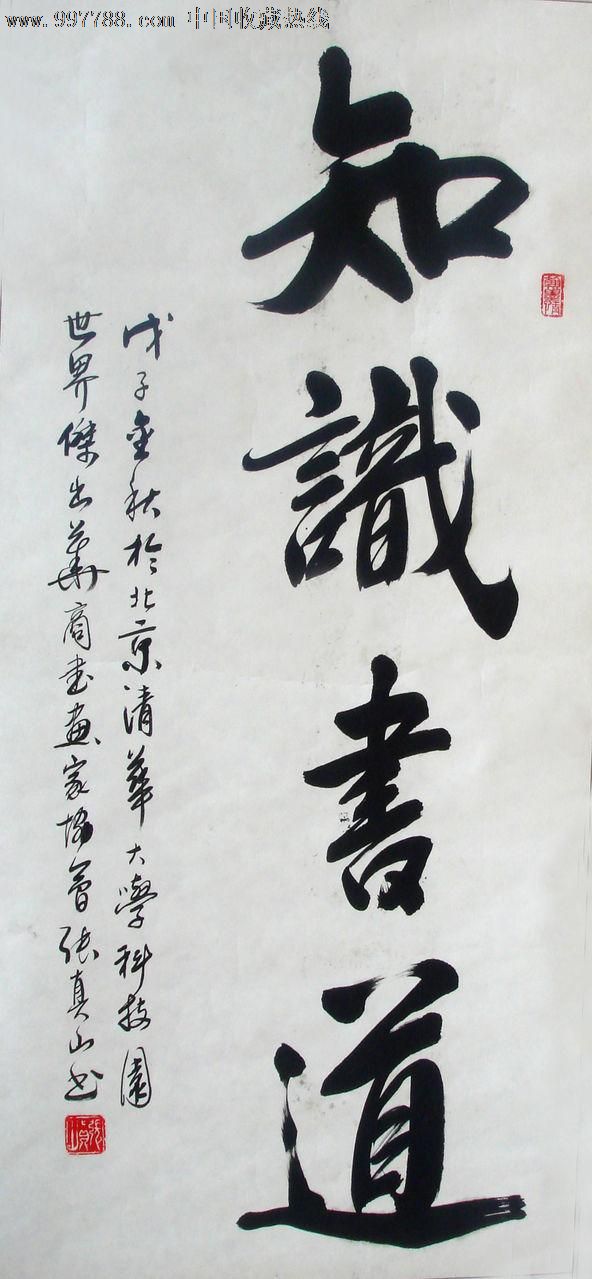 www.997788.com 中国收藏热线
知識書道
戊子金秋於北京清華大學科技園
世界傑出華商書畫家協會張真山书